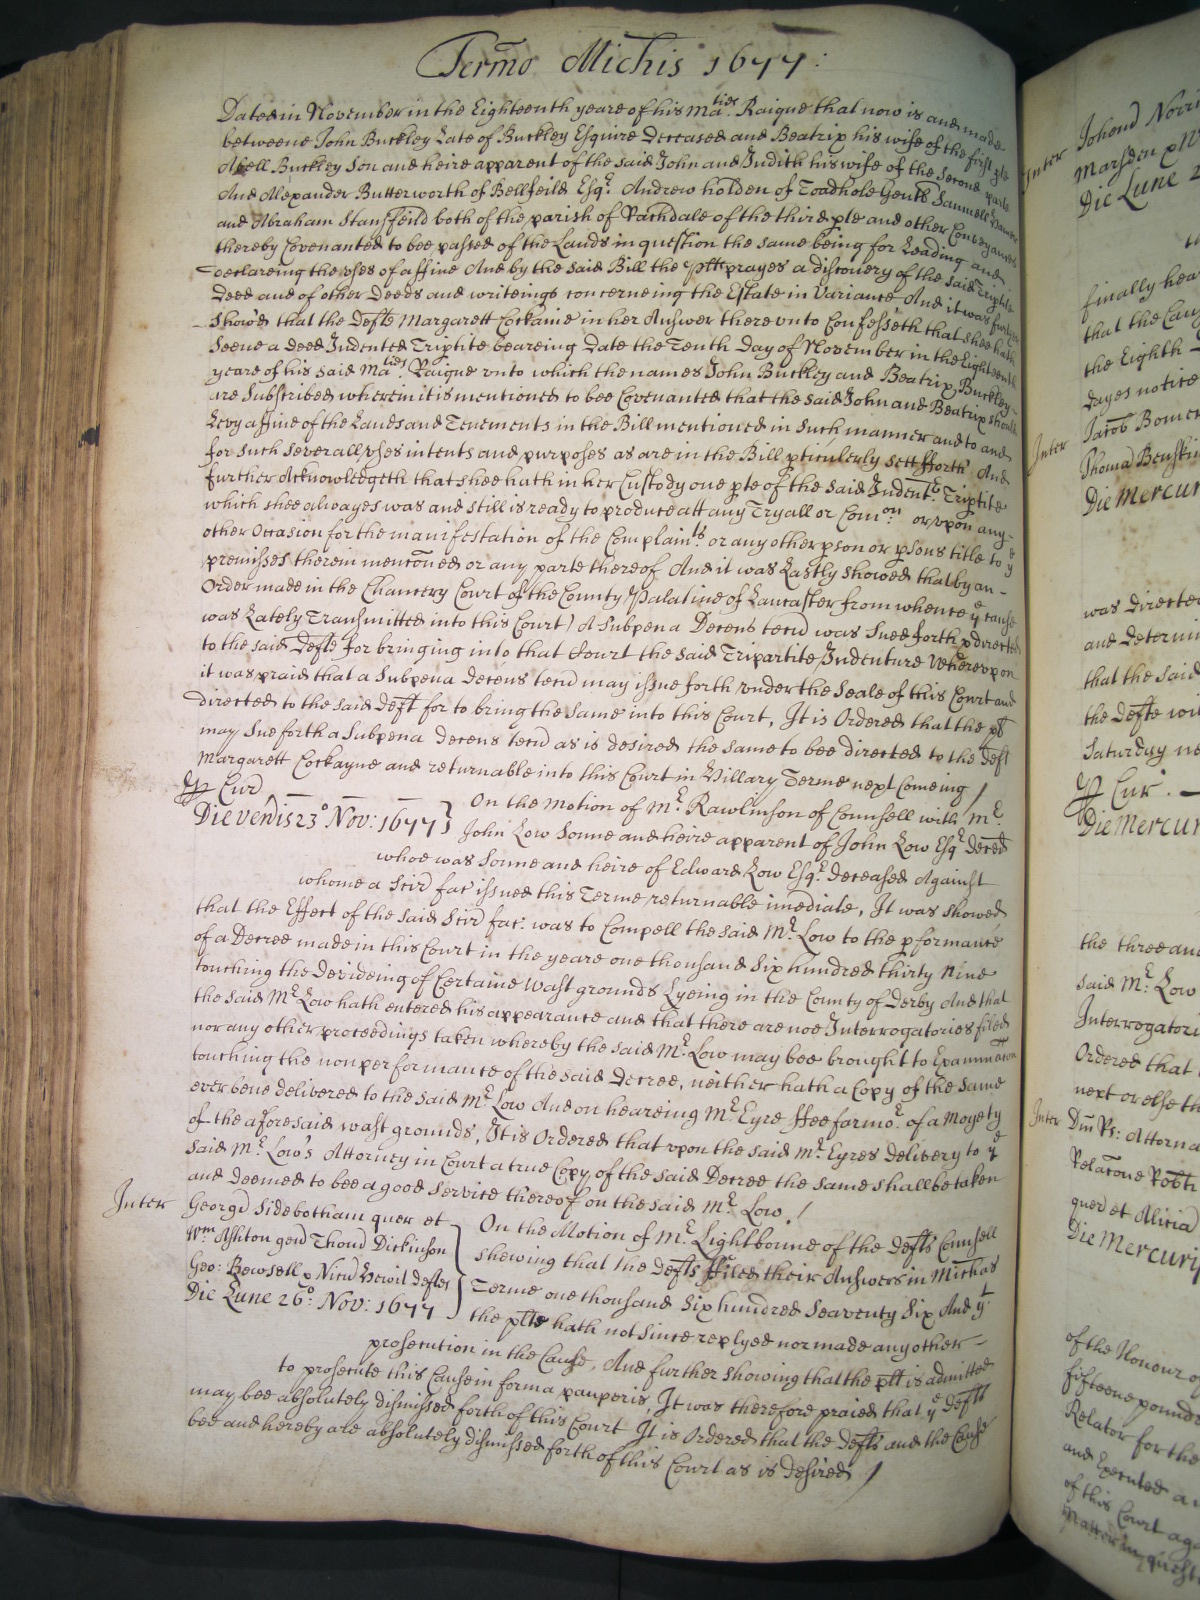 Termo Michis 1677:
Dated in November in the Eighteenth yeare of his Ma:ties Raigne that now is and made
betweene John Buckley Late of Buckley Esquire Deceased and Beatrix his wife of the first pte
Abell Buckley Son and heire apparent of the said John and Judith his wife of the second parte
And Alexander Butterworth of Bellfeild Esqr. Andrew holden of Toadhole Gent Samuell
and Abraham Stansfeild both of the parish of Rachdale of the third pte and other Conveyances
thereby Covenanted to bee passed of the Lands in question the same being for Leading and
declareing the vses of a ffine And by the said Bill the pltt prayes a discouery of the said Triptite
Deed and of other Deeds and writeings concerneing the Estate in Variance And it was further
showed that the Defte Margarett Cockaine in her Answer there vnto Confesseth that shee hath
seene a deed Indented Triptite beareing Date the Tenth Day of November in the Eighteenth
yeare of his said Ma:ties Raigne vnto which the names John Buckley and Beatrix Buckley
are Subscribed wherein it is mentioned to bee Covenanted that the said John and Beatrix should
Levy a ffine of the Lands and Tenements in the Bill mentioned in such manner and to and
for such severall vses intents and purposes as are in the Bill pticulerly sett fforth And
further Acknowledgeth that shee hath in her Custody one pte of the said Indent.e Triptite
which shee alwayes was and still is ready to produce att any Tryall or Com:on or vpon any
other Occasion for the manifestation of the Complain:ts or any other pson or psons title to ye
premisses therein menconed or any parte thereof And it was Lastly showed that by an
Order made in the Chancery Court of the County Palatine of Lancaster from whence ye cause
was Lately Transmitted into this Court) A Subpena Ducens tecu was sued forth & directed
to the said Defte for bringing into that Court the said Tripartite Indenture Wherevpon
it was praid that a Subpena ducens tecu may issue forth vnder the Seale of this Court and
directed to the said Deft for to bring the same into this Court, It is Ordered that the plt
may Sue forth a Subpena ducens tecu as is desired the same to bee directed to the Deft
Margarett Cockayne and returnable into this Court in Hillary Terme next comeing /
p Cur
Die venis 23o Nov: 1677 } On the Motion of Mr. Rawlinson of Counsell with Mr.
John Low Sonne and heire apparent of John Low Esqr deced
whoe was Sonne and heire of Edward Low Esqr. deceased Against
whome a Scir fac issued this Terme returnable imediate, It was showed
that the Effect of the said Scir fac. was to Compell the said Mr. Low to the pformance
of a Decree made in this Court in the yeare one thousand Six hundred thirty Nine
touching the devideing of Certaine wast grounds Lyeing in the County of Derby And that
the said Mr Low hath entered his appearance and that there are noe Interrogatories filed
nor any other proceedings taken whereby the said Mr. Low may bee brought to Examination
touching the nonperformance of the said Decree, neither hath a Copy of the same
ever bene delivered to the said Mr. Low And on heareing Mr. Eyre ffeefarmor. of a Moyety
of the aforesaid wast grounds, It is Ordered that vpon the said Mr. Eyres delivery to ye
said Mr. Low's Attorney in Court a true Copy of the said Decree the same shall be taken
and deemed to bee a good service thereof on the said Mr. Low. /
Inter Georgu Sidebotham quer et
Wm Ashton gen Thoma Dickinson
Geo: Bowsell & Defte
Die Lune 26o: Nov: 1677
On the Motion of Mr. Lightbowne of the Defts Counsell
shewing that the Defts ffiled their Answers in Michas
Terme one thousand Six hundred Seaventy Six And yt
the plte hath not since replyed nor made any other
prosecution in the Cause, And further showing that the plt is admitted
to prosecute this Cause in forma pauperis, It was therefore praied that ye Defts
may bee absolutely dismissed forth of this Court It is Ordered that the Defts and the Cause
bee and hereby are absolutely dismissed forth of this Court as is desired /
Inter
Marsden
Die Lune 2
finally hea
that the Cau
the Eighth
dayes notice
Inter Jacob Bower
Thoma Benskin
Die Mercur
was directed
and determi
that the said
the Defte wi
Saturday ne
p Cur.
Die Mercur
the three and
said Mr. Low
Interrogatori
Ordered that
next or else th
Inter Attorna
Relacone Robti
quer et Alicia
Die Mercurij
of the Honour of
fifteene pounds
Relator for the
and Executed a
of this Court aga
Matter in questi